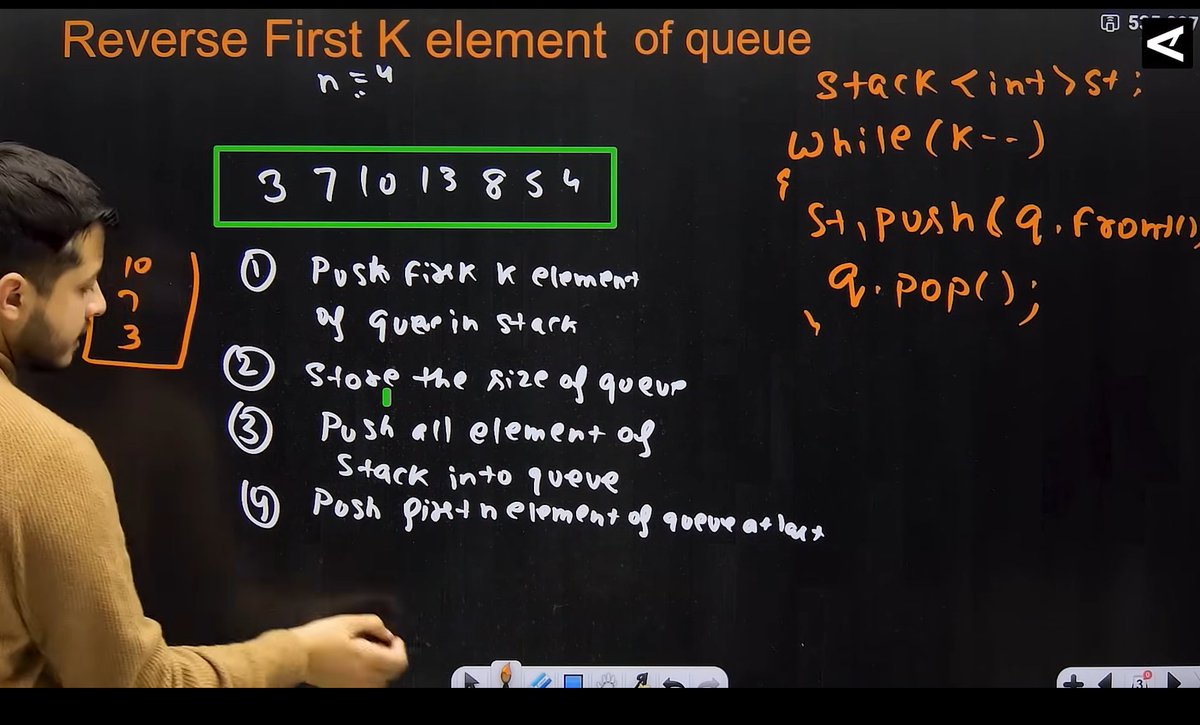 Reverse First K element of queue
n = 4
3 7 10 13 8 5 4
① Push first K element
of queue in stack
② Store the size of queue
③ Push all element of
stack into queue
④ Push first n element of queue at last
10
7
3
stack <int> st;
while (K--)
{
st.push(q.front()
q.pop();
}